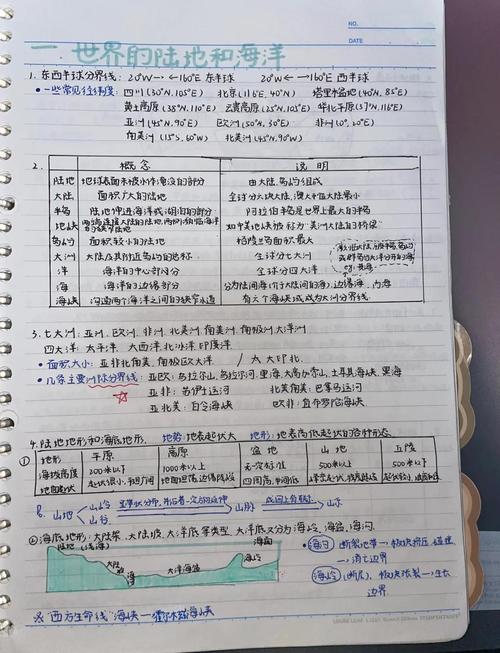 NO.
DATE
一 世界的陆地和海洋
1. 东西半球分界线: 20°W ← → 160°E 东半球 20°W ← → 160°E 西半球
• 一些常见经纬度: 四川(30°N, 105°E) 北京(116°E, 40°N) 塔里木盆地(40°N, 85°E)
黄土高原(35°N, 110°E) 云贵高原(25°N, 105°E) 华北平原(37°N, 116°E)
亚洲(45°N, 90°E) 欧洲(50°N, 30°E) 非洲(0°, 20°E)
南美洲(15°S, 60°W) 北美洲(45°N, 90°W)
2. 概念 说明
陆地 地球表面未被水淹没的部分 由大陆、岛屿组成
大陆 面积广大的陆地 全球分六块大陆, 澳大利亚大陆最小
半岛 陆地伸进海洋或湖泊的部分 阿拉伯半岛是世界最大的半岛
地峡 如中美地峡被称为"美洲大陆的桥梁"
岛屿 面积较小的陆地 格陵兰岛面积最大
大洲 大陆及其附近岛屿的总称 全球分七大洲
洋 海洋的中心部分 全球分四大洋
海 海洋的边缘部分 分为陆间海(介于大陆间的海), 边缘海, 内海
海峡 沟通两个海洋之间的狭窄水道 有些海峡或成为大洲分界线
3. 七大洲: 亚洲, 欧洲, 非洲, 北美洲, 南美洲, 南极洲, 大洋洲
四大洋: 太平洋, 大西洋, 北冰洋, 印度洋
• 面积大小: 亚非北南美, 南极欧大洋 / 太大印北
• 几条主要洲际分界线: 亚欧: 乌拉尔山, 乌拉尔河, 里海, 大高加索山, 土耳其海峡, 黑海
亚非: 苏伊士运河 北美南美: 巴拿马运河
亚北美: 白令海峡 欧非: 直布罗陀海峡
4. 陆地地形和海底地形. 地势: 地表起伏大 地形: 地表高低起伏的各种形态
① 地形 平原 高原 盆地 山地 丘陵
海拔高度 200米以下 1000米以上 无一定标准 500米以上 500米以下
地表起伏 四周高, 中间低
山地 山岭 山脉 山系
山谷
② 海底地形: 大陆架, 大陆坡, 大洋底等类型, 大洋底又分为海岭, 海盆, 海沟.
陆地 大陆 海沟 大洋海盆 海岭 海面
海沟 断裂地带 → 板块挤压碰撞
→ 消亡边界
海岭 (断层), 板块张裂 → 生长
边界
※ "西方生命线"海峡 — 霍尔木兹海峡